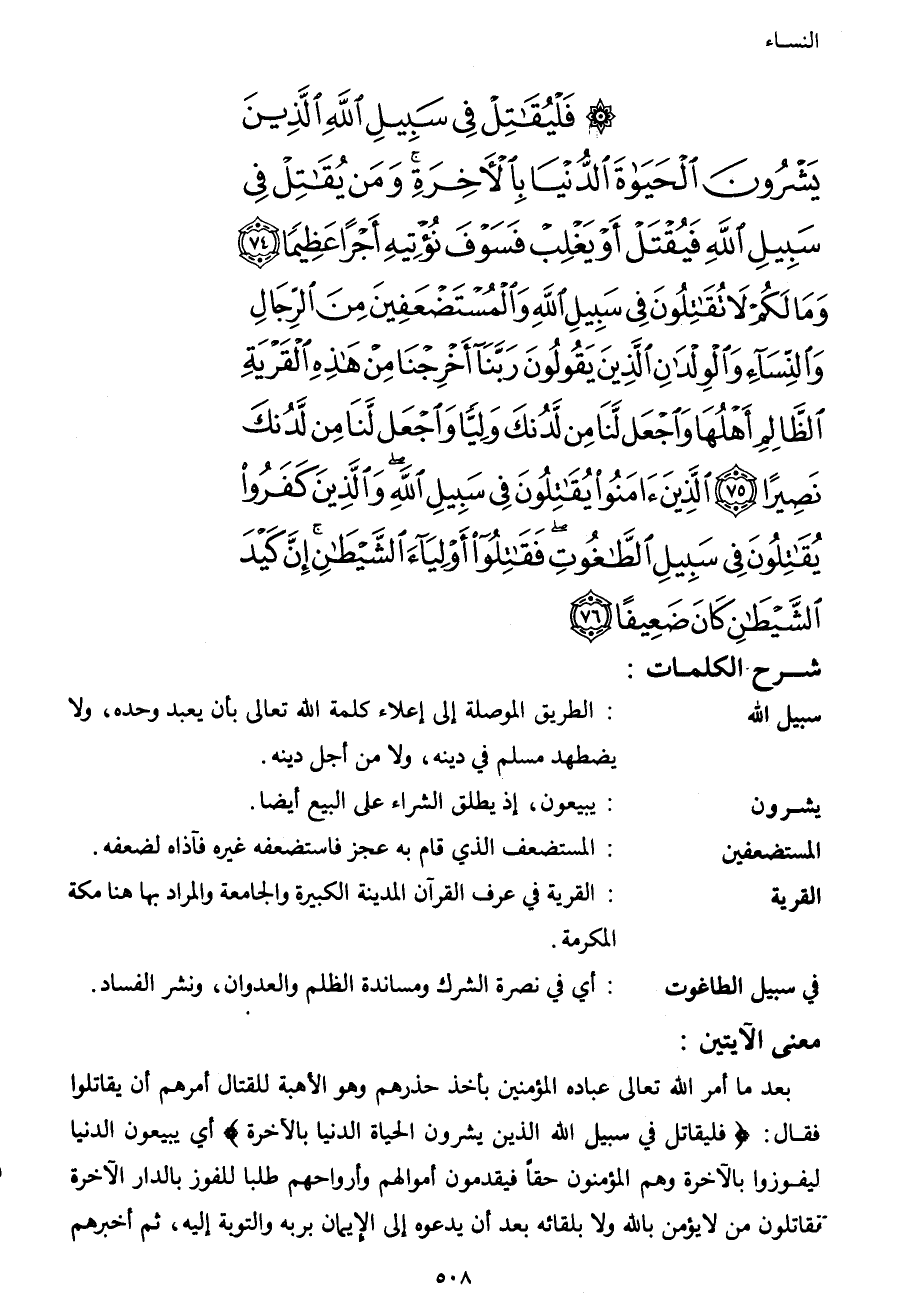 النساء
۞ فَلْيُقَٰتِلْ فِى سَبِيلِ ٱللَّهِ ٱلَّذِينَ
يَشْرُونَ ٱلْحَيَوٰةَ ٱلدُّنْيَا بِٱلْأَخِرَةِ ۚ وَمَن يُقَٰتِلْ فِى
سَبِيلِ ٱللَّهِ فَيُقْتَلْ أَوْ يَغْلِبْ فَسَوْفَ نُؤْتِيهِ أَجْرًا عَظِيمًا ٧٤
وَمَا لَكُمْ لَا تُقَٰتِلُونَ فِى سَبِيلِ ٱللَّهِ وَٱلْمُسْتَضْعَفِينَ مِنَ ٱلرِّجَالِ
وَٱلنِّسَآءِ وَٱلْوِلْدَٰنِ ٱلَّذِينَ يَقُولُونَ رَبَّنَآ أَخْرِجْنَا مِنْ هَٰذِهِ ٱلْقَرْيَةِ
ٱلظَّالِمِ أَهْلُهَا وَٱجْعَل لَّنَا مِن لَّدُنكَ وَلِيًّا وَٱجْعَل لَّنَا مِن لَّدُنكَ
نَصِيرًا ٧٥ ٱلَّذِينَ ءَامَنُوا۟ يُقَٰتِلُونَ فِى سَبِيلِ ٱللَّهِ ۖ وَٱلَّذِينَ كَفَرُوا۟
يُقَٰتِلُونَ فِى سَبِيلِ ٱلطَّٰغُوتِ ۖ فَقَٰتِلُوٓا۟ أَوْلِيَآءَ ٱلشَّيْطَٰنِ ۚ إِنَّ كَيْدَ
ٱلشَّيْطَٰنِ كَانَ ضَعِيفًا ٧٦
شرح الكلمات :
سبيل الله : الطريق الموصلة إلى إعلاء كلمة الله تعالى بأن يعبد وحده، ولا
يضطهد مسلم في دينه، ولا من أجل دينه.
يشرون : يبيعون، إذ يطلق الشراء على البيع أيضا.
المستضعفين : المستضعف الذي قام به عجز فاستضعفه غيره فآذاه لضعفه.
القرية : القرية في عرف القرآن المدينة الكبيرة والجامعة والمراد بها هنا مكة
المكرمة.
في سبيل الطاغوت : أي في نصرة الشرك ومساندة الظلم والعدوان، ونشر الفساد.
معنى الآيتين :
بعد ما أمر الله تعالى عباده المؤمنين بأخذ حذرهم وهو الأهبة للقتال أمرهم أن يقاتلوا
فقال: ﴿ فليقاتل في سبيل الله الذين يشرون الحياة الدنيا بالآخرة ﴾ أي يبيعون الدنيا
ليفوزوا بالآخرة وهم المؤمنون حقاً فيقدمون أموالهم وأرواحهم طلبا للفوز بالدار الآخرة
تقاتلون من لايؤمن بالله ولا بلقائه بعد أن يدعوه إلى الإيمان بربه والتوبة إليه، ثم أخبرهم
٥٠٨